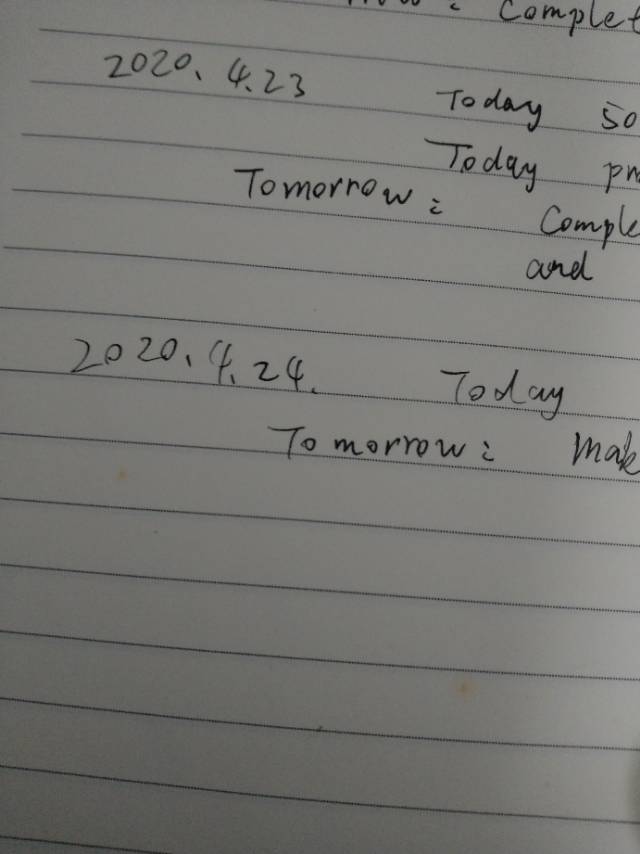 : Complet
2020. 4.23 Today 50
Today pr
Tomorrow: Comple
and
2020. 4. 24. Today
Tomorrow: mak